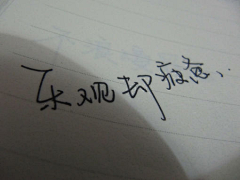 乐观却疲惫..